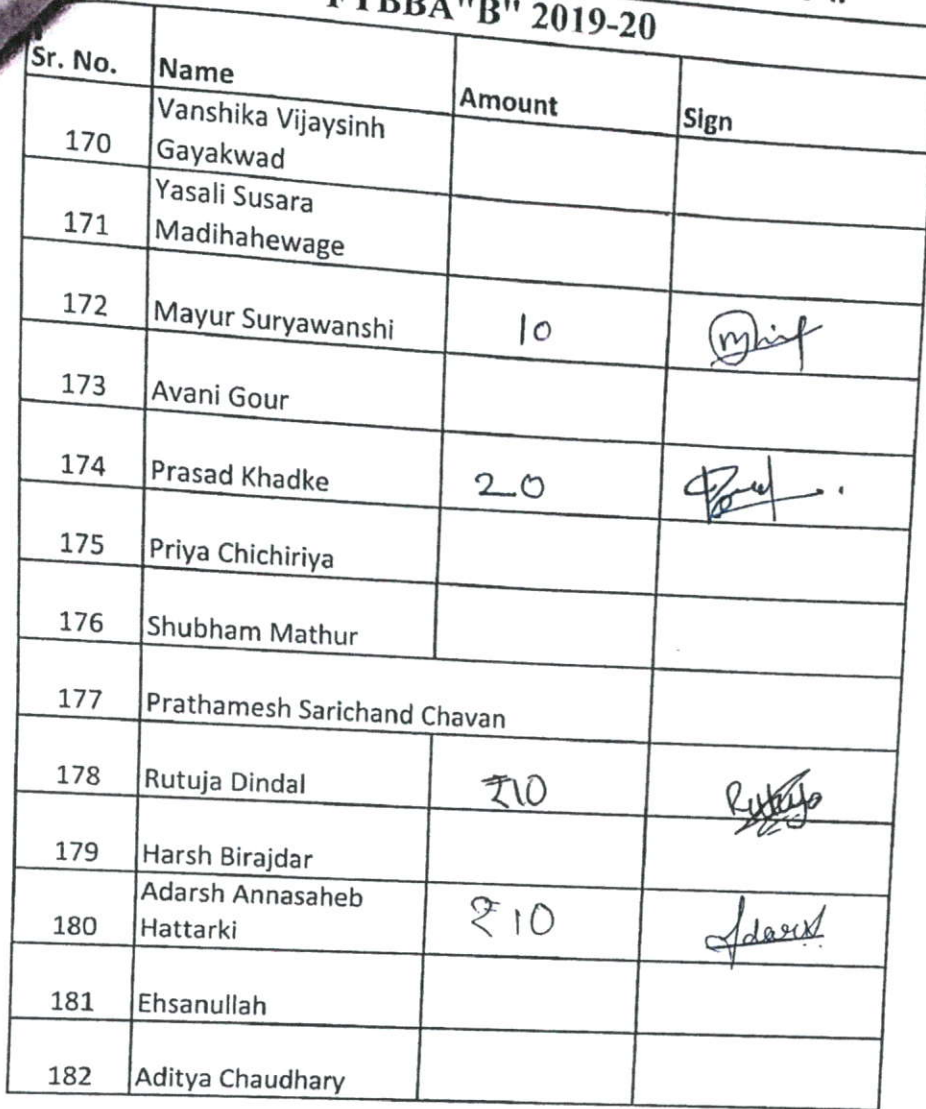 FYBBA"B" 2019-20
Sr. No. Name Amount Sign
170 Vanshika Vijaysinh
Gayakwad
171 Yasali Susara
Madihahewage
172 Mayur Suryawanshi 10
173 Avani Gour
174 Prasad Khadke 20
175 Priya Chichiriya
176 Shubham Mathur
177 Prathamesh Sarichand Chavan
178 Rutuja Dindal ₹10 Rutuja
179 Harsh Birajdar
180 Adarsh Annasaheb
Hattarki ₹10 Adarsh
181 Ehsanullah
182 Aditya Chaudhary